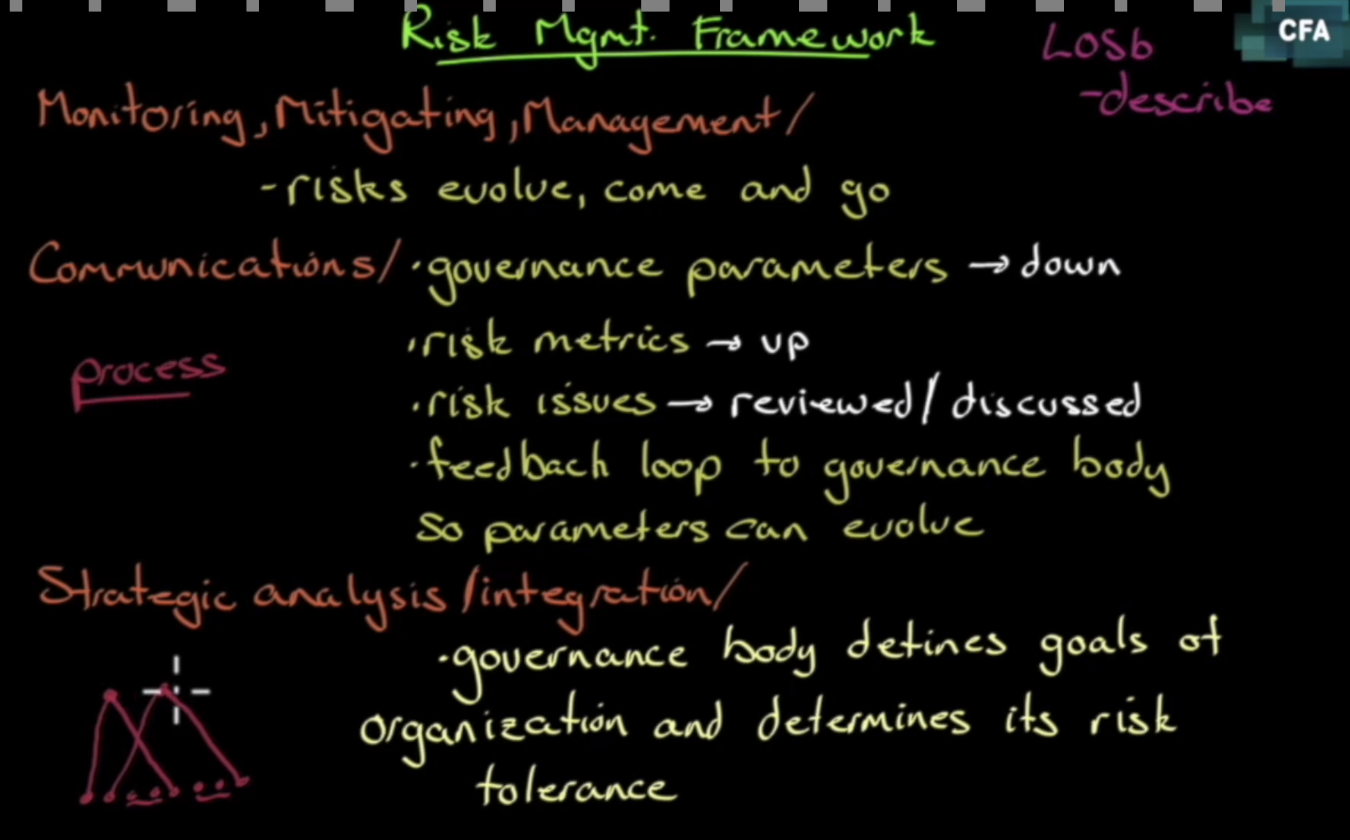 Risk Mgmt. Framework
LOSb
-describe
CFA
Monitoring, Mitigating, Management/
-risks evolve, come and go
Communications/ ·governance parameters → down
·risk metrics → up
process
·risk issues → reviewed/discussed
·feedback loop to governance body
so parameters can evolve
Strategic analysis/integration/
·governance body defines goals of
organization and determines its risk
tolerance